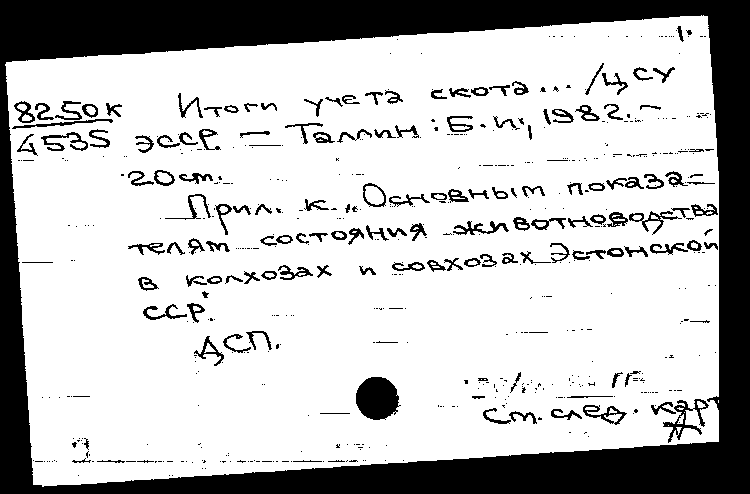 1.
82.50к Итоги учета скота... /ЦСУ
4535 ЭССР. — Таллин: Б.и., 1982. —
20 ст.
Прил. к „Основным показа=
телям состояния животноводства
в колхозах и совхозах Эстонской
ССР".
ДСП.
гг
См. след. карт